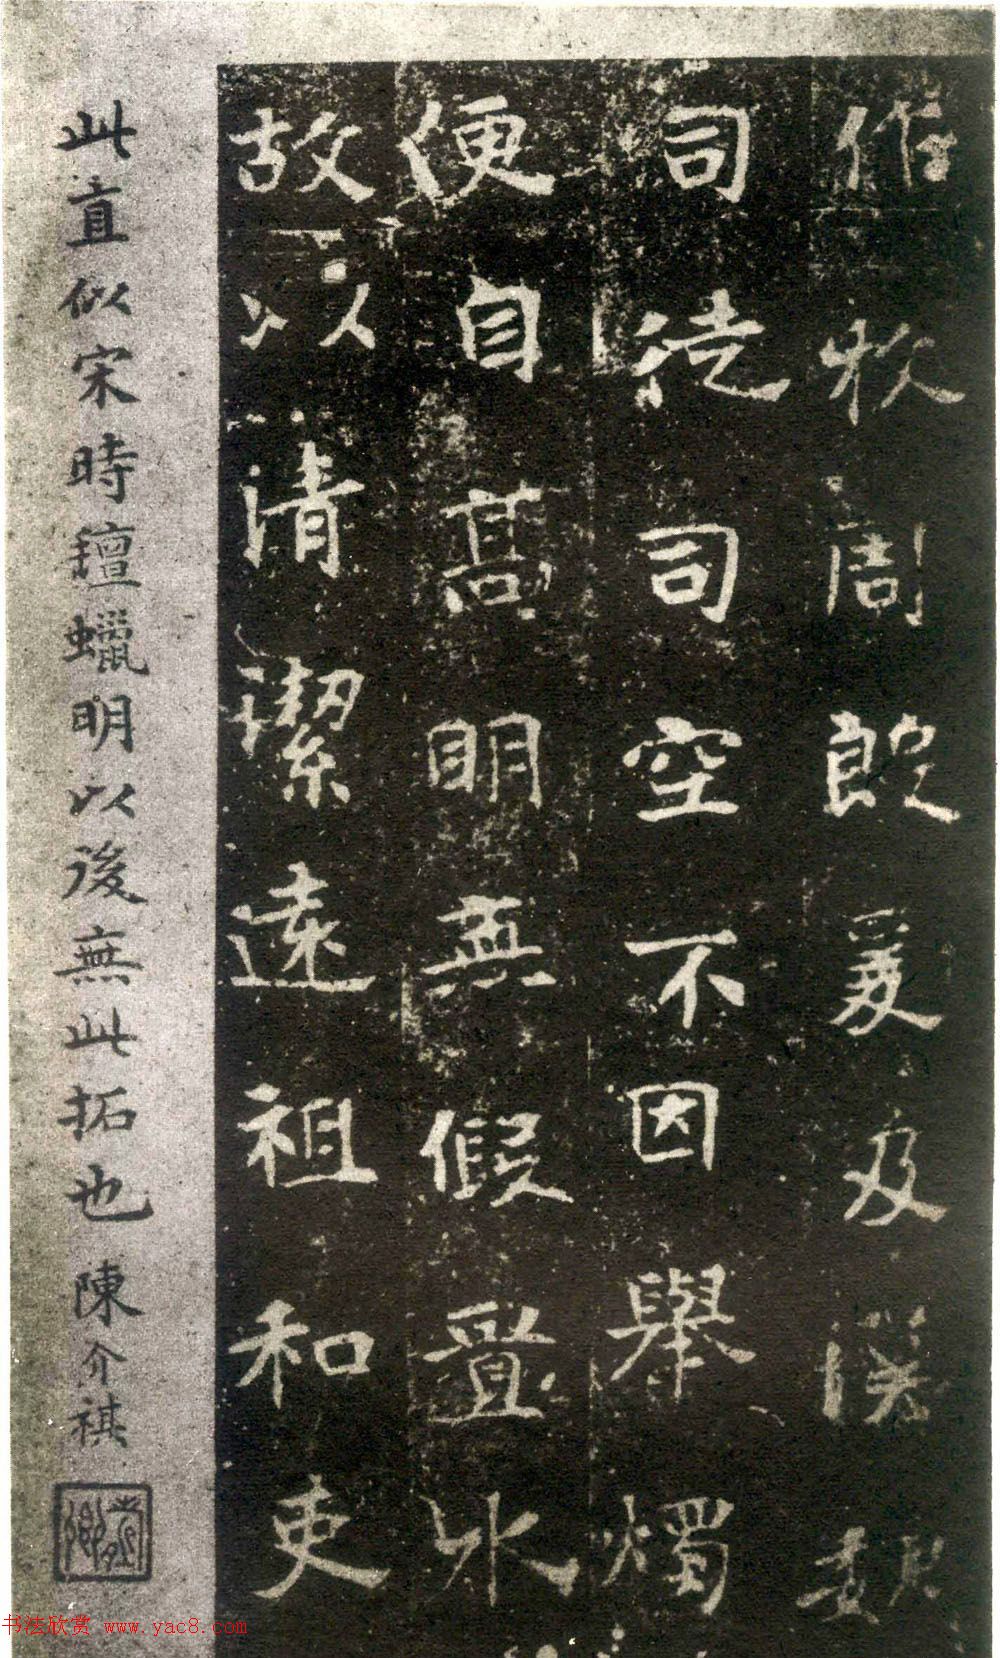 作牧周爰及漢魏
司徒司空不因舉燭
便自高明無假置水
故以清潔遠祖和吏
此直似宋時氊蠟明以後無此拓也 陳介祺
壽卿
书法欣赏 www.yac8.com